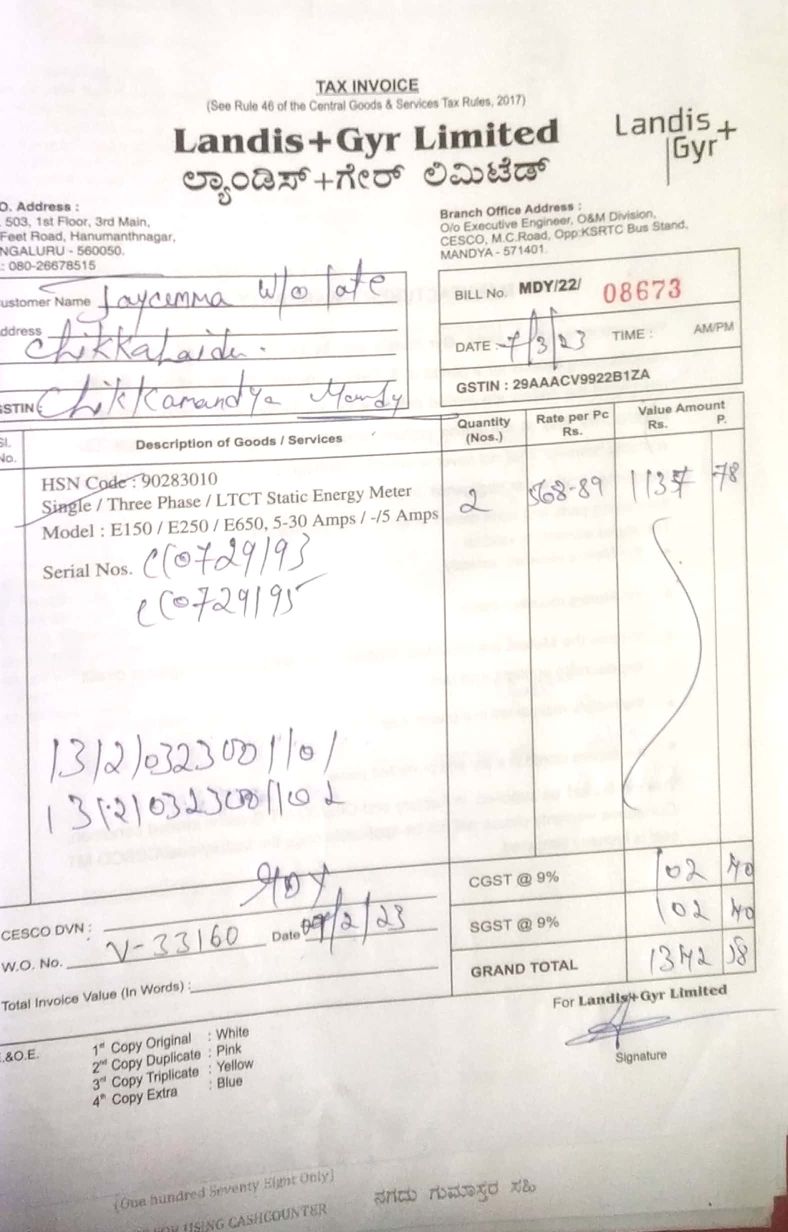 TAX INVOICE
(See Rule 46 of the Central Goods & Services Tax Rules, 2017)
Landis+Gyr Limited
ಲ್ಯಾಂಡಿಸ್+ಗೇರ್ ಲಿಮಿಟೆಡ್
Landis+
Gyr
O. Address :
503, 1st Floor, 3rd Main,
Feet Road, Hanumanthnagar,
NGALURU - 560050.
: 080-26678515
Branch Office Address :
O/o Executive Engineer, O&M Division,
CESCO, M.C.Road, Opp:KSRTC Bus Stand,
MANDYA - 571401.
ustomer Name Jayamma W/o late
ddress
GSTIN Chikkamandya Mandy
BILL No. MDY/22/ 08673
DATE : 7/3/23 TIME : AM/PM
GSTIN : 29AAACV9922B1ZA
Sl. No. Description of Goods / Services Quantity (Nos.) Rate per Pc Rs. Value Amount Rs. P.
HSN Code : 90283010
Single / Three Phase / LTCT Static Energy Meter
Model : E150 / E250 / E650, 5-30 Amps / -/5 Amps
2 568-89 1137 78
Serial Nos. CC0729193
CC0729195
CGST @ 9% 102 40
SGST @ 9% 102 40
GRAND TOTAL 1342 58
CESCO DVN : MDY
W.O. No. V-33160 Date /2/23
Total Invoice Value (In Words) :
For Landis+Gyr Limited
Signature
.&O.E.
1st Copy Original : White
2nd Copy Duplicate : Pink
3rd Copy Triplicate : Yellow
4th Copy Extra : Blue
(One hundred Seventy Eight Only)
ನಗದು ಗುಮಾಸ್ತರ ಸಹಿ
FOR USING CASHCOUNTER